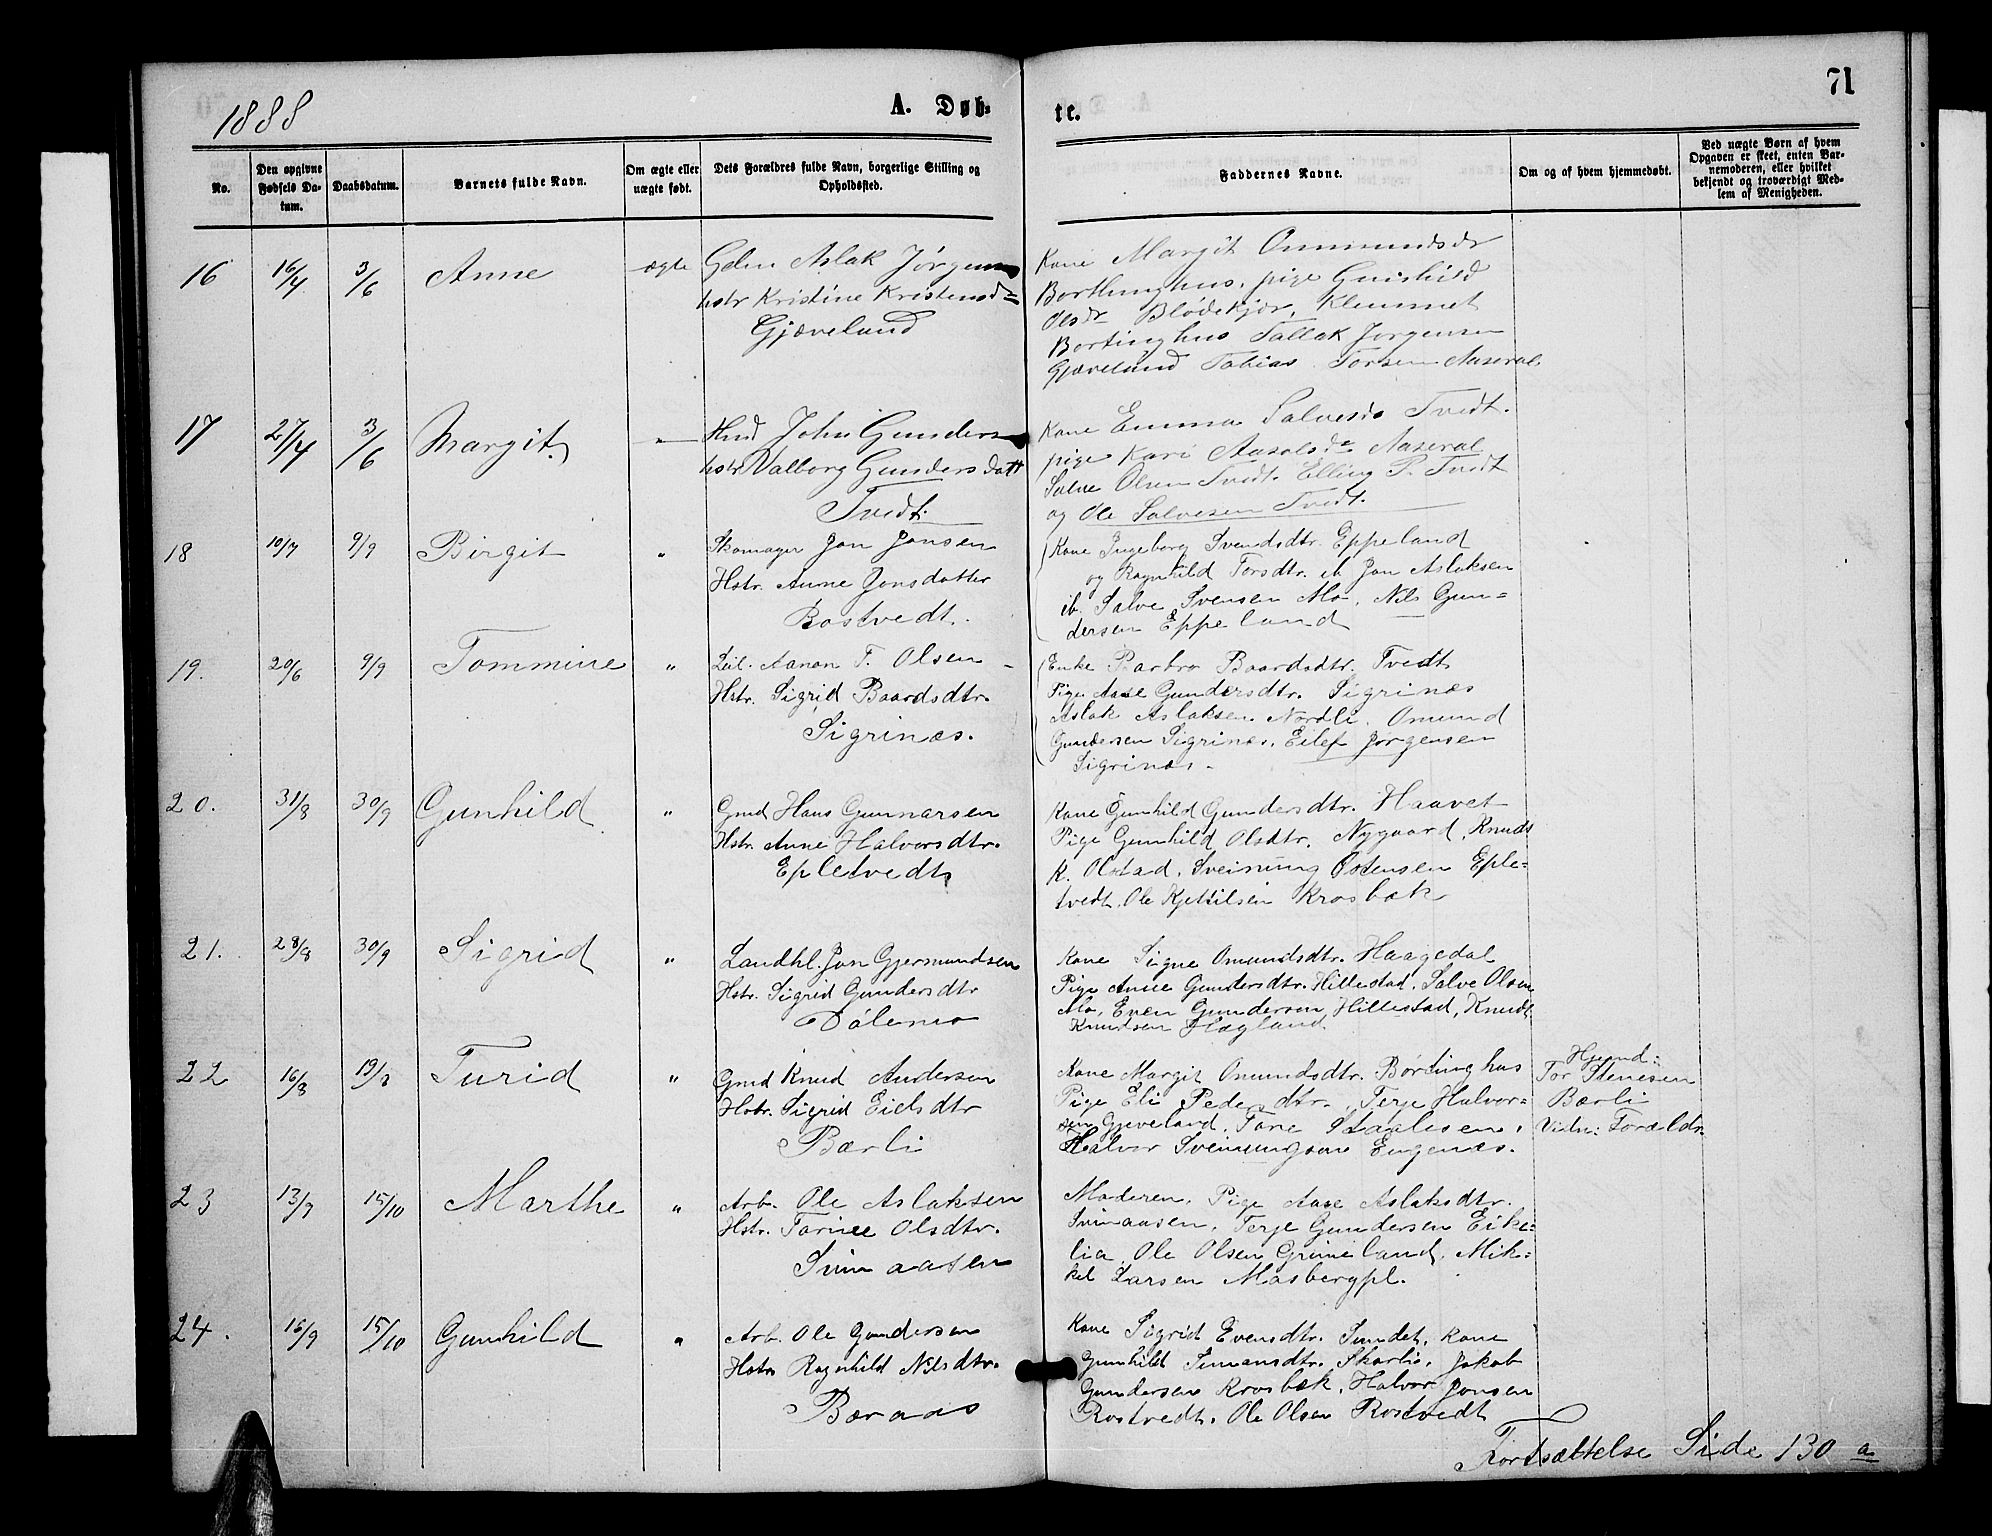 1888
A. Døb-
te.
71
No.
Den opgivne Fødsels Datum.
Daabsdatum.
Barnets fulde Navn.
Om ægte eller uægte født.
Dets Forældres fulde Navn, borgerlige Stilling og Opholdssted.
Faddernes Navne.
Om og af hvem hjemmedøbt.
Ved uægte Børn af hvem Opgaven er skeet, enten Barnemoderen, eller hvilket bekjendt og troværdigt Medlem af Menigheden.
16 16/4 3/6 Anne ægte Aslak Jørgens
Hstr Kristine Kristensd
Gjæveland
Kone Margit Ommundsdr
Bortinghus, pige Gunhild
Olsdr Blødekjær, Klemmet
Bortinghus Tallak Jørgensen
Gjæveland Tobias Torsen Aaseral
17 27/4 3/6 Margit " Hmd John Gunders
hstr Valborg Gunders datt
Tvedt.
Kone Emma Salvesd Tvedt.
pige Kari Aaseral
Salve Olsen Tvedt. Elling P. Tvedt
og Ole Salvesen Tvedt.
18 10/7 9/9 Birgit " Skomager Jon Jonsen
Hstr. Anne Jonsdatter
Rostvedt.
Kone Ingeborg Svendsdtr. Eppeland
og Ragnhild Torsdtr. ib Jon Aslaksen
ib. Salve Svensen Mo, Nils Gun=
dersen Eppeland
19. 20/6 9/9 Tommine " Leil. Aanon T. Olsen
Hstr. Sigrid Baardsdtr.
Sigrinæs.
Enke Barbro Baardsdtr. Tvedt
Pige Aase Gundersdtr. Sigrinæs
Aslak Aslaksen Nordli. Omund
Gundersen Sigrinæs, Eilef Jørgensen
Sigrinæs.
20. 31/8 30/9 Gunhild " Gmd Hans Gunnarsen
Hstr. Anne Halvorsdtr.
Epletvedt
Kone Gunhild Gundersdtr. Haavet
Pige Gunhild Olsdtr. Nygaard, Knud
K. Olstad, Sveinung Østensen Eple-
tvedt, Ole Kjettilsen Krosbæk
21. 28/8 30/9 Sigrid " Landhl. Jon Gjermundsen
Hstr. Sigrid Gundersdtr
Dølemo
Kone Signe Omundsdtr. Haagedal
Pige Anne Gundersdtr. Hillestad, Salve Olsen
Mo, Even Gundersen Hillestad, Knud
Knudsen Hægland
22 16/8 19/8 Turid " Gmd Knud Andersen
Hstr. Sigrid Eielsdtr
Bærli
Kone Margit Omundsdtr. Børtinghus
Pige Eli Pedersdtr., Terje Halvor-
sen Gjeveland, Tone Staalesen,
Halvor Sveinungsen Engenæs.
Hjemd:
Tor Stenesen
Bærli
Vidn: Foræld
23 13/9 15/10 Marthe " Arb. Ole Aslaksen
Hstr. Torine Olsdtr.
Svinaasen
Moderen, Pige Aase Aslaksdtr.
Svinaasen, Terje Gundersen Eike-
lia, Ole Olsen Grimeland, Mik=
kel Larsen Mosbergpl.
24. 16/9 15/10 Gunhild " Arb. Ole Gundersen
Hstr Ragnhild Nilsdtr.
Bæraas
Kone Sigrid Evensdtr. Sundet, Kone
Gunhild Simensdtr. Skorli, Jakob
Gundersen Krosbæk, Halvor Jonsen
Rostvedt, Ole Olsen Rostvedt
Fortsættelse Side 130 a